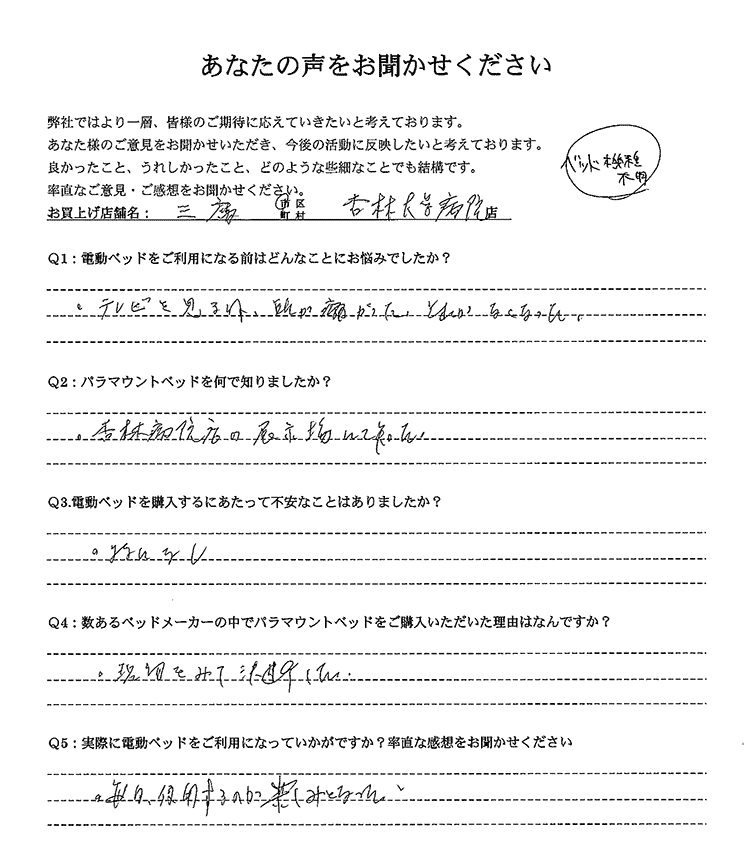 あなたの声をお聞かせください
弊社ではより一層、皆様のご期待に応えていきたいと考えております。
あなた様のご意見をお聞かせいただき、今後の活動に反映したいと考えております。
良かったこと、うれしかったこと、どのような些細なことでも結構です。
率直なご意見・ご感想をお聞かせください。
ベッド機種
不明
お買上げ店舗名： 三鷹 市区町村 杏林大学病院店
Q1：電動ベッドをご利用になる前はどんなことにお悩みでしたか？
。テレビを見る時、が痛かった、それがなくなった。
Q2：パラマウントベッドを何で知りましたか？
。杏林病院店の展示場にて知った。
Q3.電動ベッドを購入するにあたって不安なことはありましたか？
。特になし
Q4：数あるベッドメーカーの中でパラマウントベッドをご購入いただいた理由はなんですか？
。現物をみてした。
Q5：実際に電動ベッドをご利用になっていかがですか？率直な感想をお聞かせください
。毎日、使用するのが楽しみとなった。